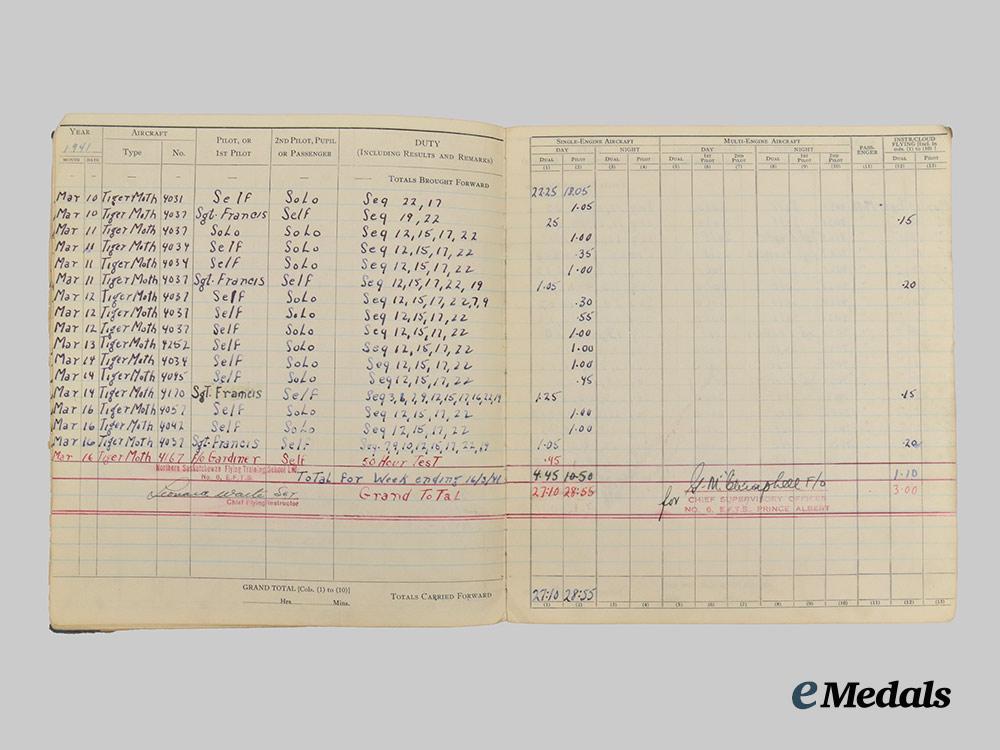 YEAR AIRCRAFT PILOT, OR 1ST PILOT 2ND PILOT, PUPIL OR PASSENGER DUTY (INCLUDING RESULTS AND REMARKS)
1941 Type No.
MONTH DATE
— — — — — — TOTALS BROUGHT FORWARD
Mar 10 Tiger Moth 4031 Self Solo Seq 22, 17
Mar 10 Tiger Moth 4037 Sgt. Francis Self Seq 19, 22
Mar 11 Tiger Moth 4037 Solo Solo Seq 12, 15, 17, 22
Mar 11 Tiger Moth 4034 Self Solo Seq 12, 15, 17, 22
Mar 11 Tiger Moth 4034 Self Solo Seq 12, 15, 17, 22
Mar 11 Tiger Moth 4037 Sgt. Francis Self Seq 12, 15, 17, 22, 19
Mar 12 Tiger Moth 4037 Self Solo Seq 12, 15, 17, 22, 7, 9
Mar 12 Tiger Moth 4037 Self Solo Seq 12, 15, 17, 22
Mar 12 Tiger Moth 4037 Self Solo Seq 12, 15, 17, 22
Mar 13 Tiger Moth 4252 Self Solo Seq 12, 15, 17, 22
Mar 14 Tiger Moth 4034 Self Solo Seq 12, 15, 17, 22
Mar 14 Tiger Moth 4095 Self Solo Seq 12, 15, 17, 22
Mar 14 Tiger Moth 4170 Sgt. Francis Self Seq 3, 6, 7, 9, 12, 15, 17, 16, 22, 19
Mar 16 Tiger Moth 4057 Self Solo Seq 12, 15, 17, 22
Mar 16 Tiger Moth 4042 Self Solo Seq 12, 15, 17, 22
Mar 16 Tiger Moth 4037 Sgt. Francis Self Seq. 7, 9, 10, 12, 15, 17, 22, 19
Mar 16 Tiger Moth 4167 F/o Gardiner Self 50 Hour Test
Northern Saskatchewan Flying Training School Ltd.
No. 6, E.F.T.S.
Total For Week ending 16/3/41
Grand Total
Chief Flying Instructor
GRAND TOTAL [Cols. (1) to (10)]
Hrs. Mins.
TOTALS CARRIED FORWARD
SINGLE-ENGINE AIRCRAFT MULTI-ENGINE AIRCRAFT PASSENGER INSTR/CLOUD FLYING [Incl. in cols. (1) to (10)]
DAY NIGHT DAY NIGHT
DUAL PILOT DUAL PILOT DUAL 1ST PILOT 2ND PILOT DUAL 1ST PILOT 2ND PILOT DUAL PILOT
(1) (2) (3) (4) (5) (6) (7) (8) (9) (10) (11) (12) (13)
22.25 18.05
1.05
.25 .15
1.00
.35
1.00
1.05 .20
.30
.55
1.00
1.00
1.00
.45
1.25 .15
1.00
1.00
1.05 .20
.45
4.45 10.50 1.10
27:10 28:55 3.00
for
CHIEF SUPERVISORY OFFICER
NO. 6, E.F.T.S., PRINCE ALBERT
27:10 28:55
(1) (2) (3) (4) (5) (6) (7) (8) (9) (10) (11) (12) (13)
eMedals